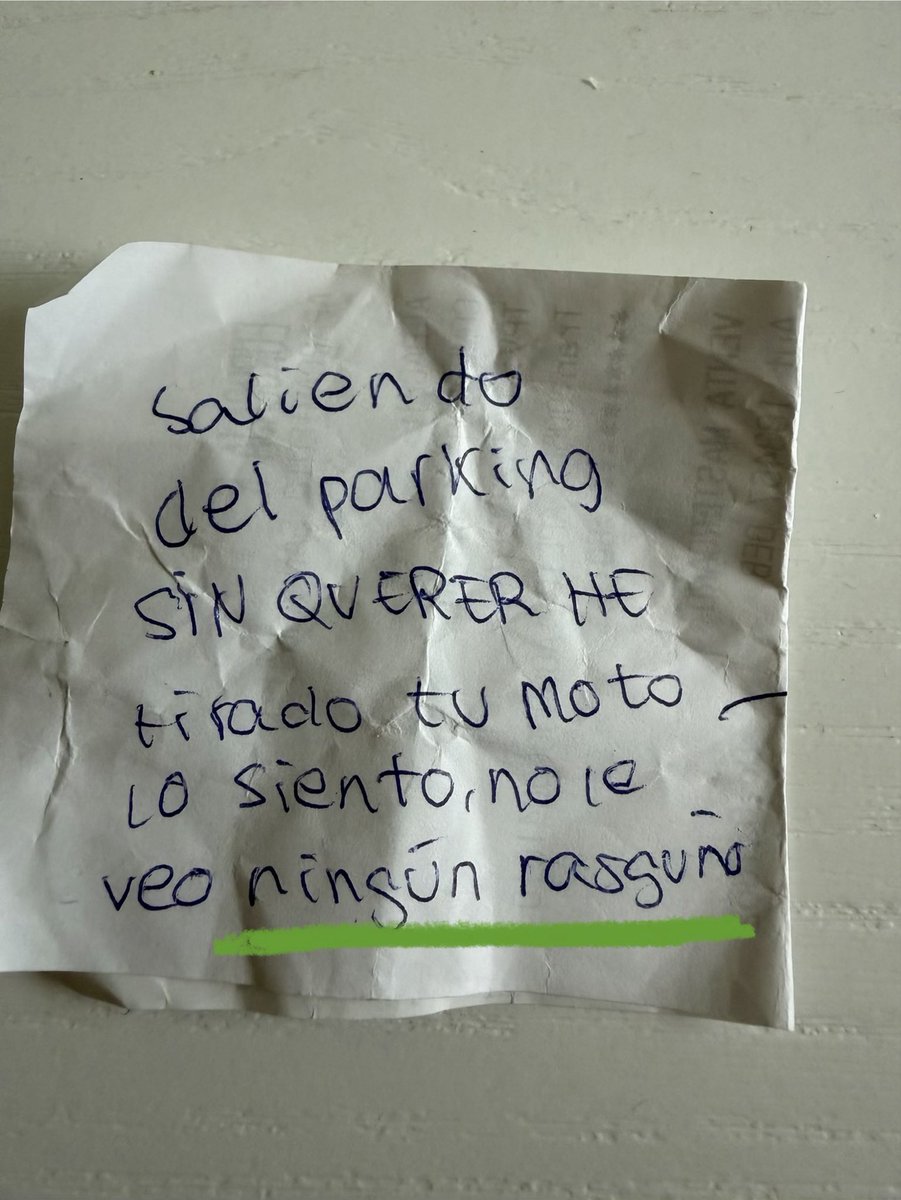 saliendo
del parking
SIN QUERER HE
tirado tu moto –
LO siento, no le
veo ningún rasguño